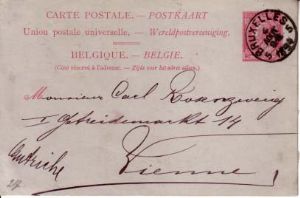 CARTE POSTALE. — POSTKAART
Union postale universelle. — Wereldpostvereeniging.
BELGIQUE. — BELGIE.
(Côté réservé à l'adresse. — Zijde voor het adres alleen.)
BRUXELLES
Monsieur Carl
I Getreidemarkt 14
Autriche
Vienne